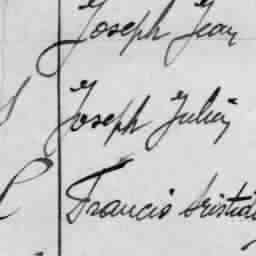 Joseph Jean
Joseph Julien
Francis Aristide